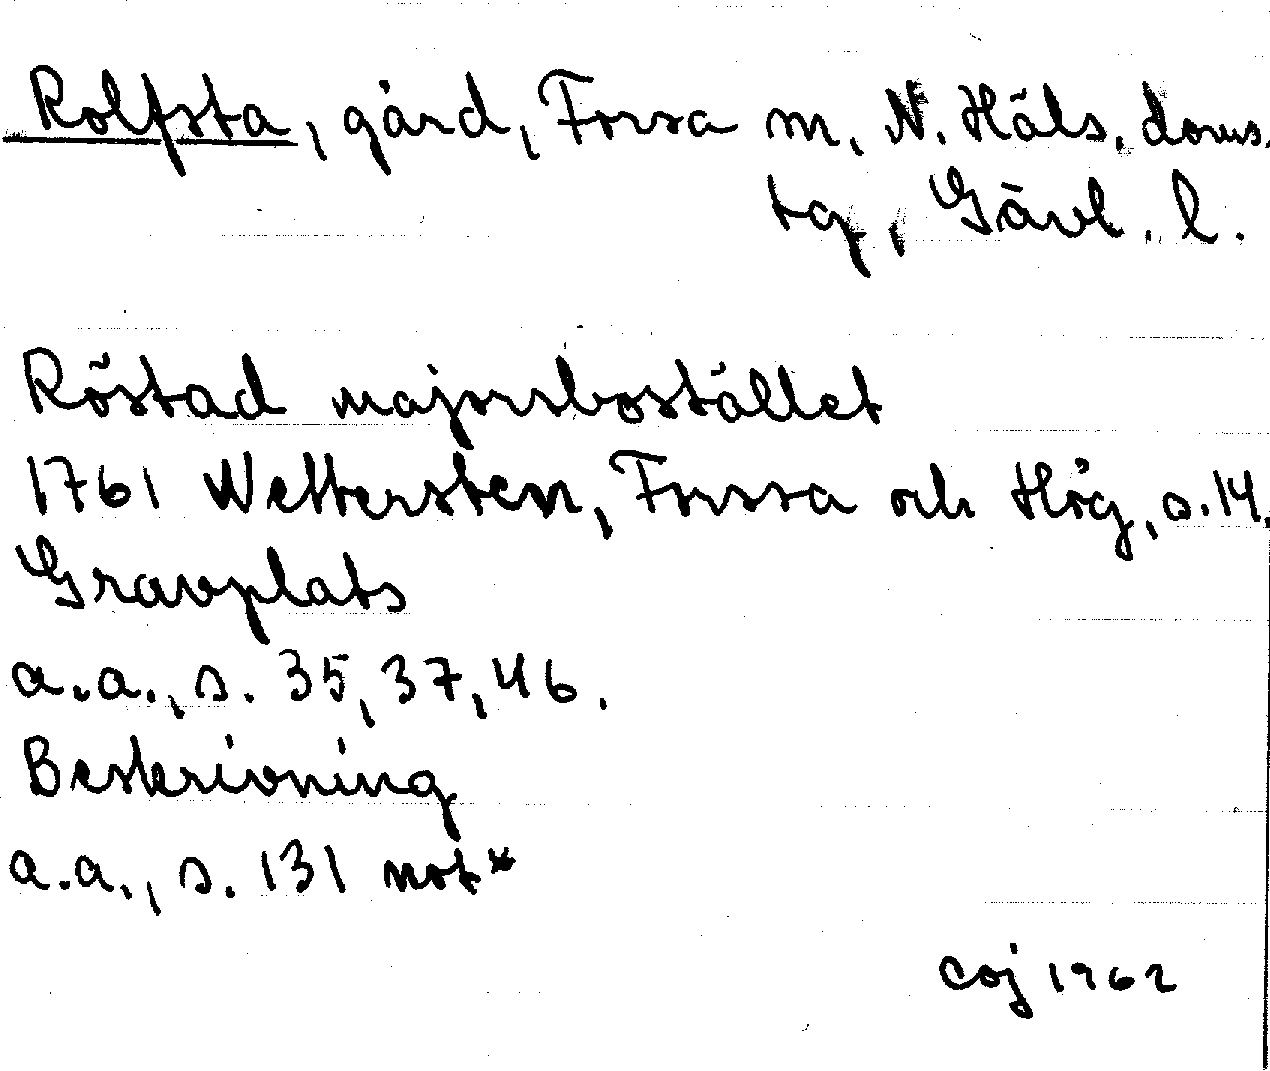 Rolfsta, gård, Forsa sn, N. Häls. doms.
tg, Gävl. l.
Röstad majorsbostället
1761 Wettersten, Forssa och Hög, s. 14.
Gravplats
a.a., s. 35, 37, 46.
Beskrivning
a.a., s. 131 not*
coj 1962